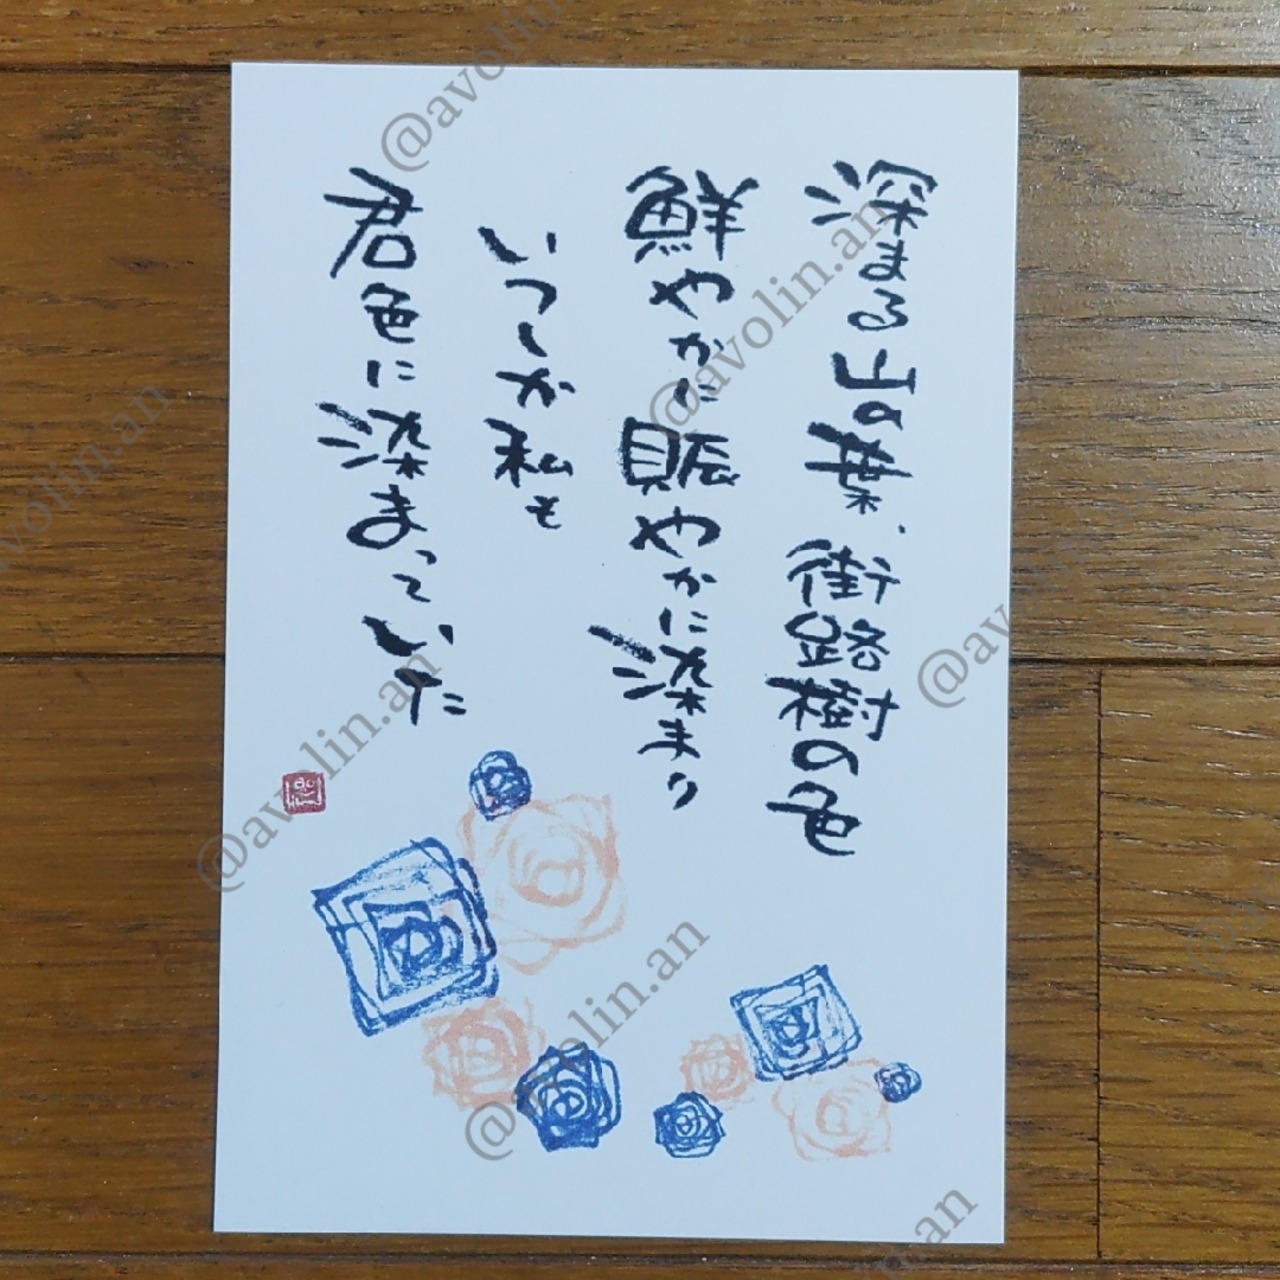 深まる山の葉、街路樹の色
鮮やかに賑やかに染まり
いつしか私も
君色に染まっていた
@avolin.an
@avolin.an
@avolin.an
@avolin.an
@avolin.an
@avolin.an